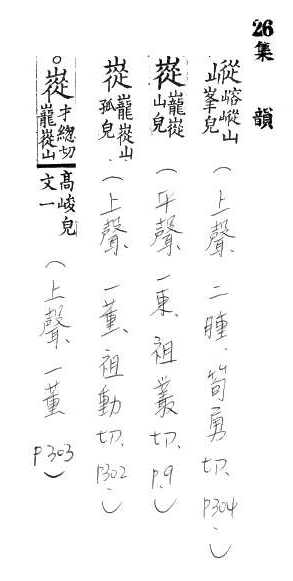 26集韻
嵷嵱嵷山峯皃（上聲、二腫、筍勇切、P304、）
嵸巃嵸山皃（平聲、一東、祖叢切、P.9、）
嵸巃嵸山孤皃（上聲、一董、祖動切、P302、）
○嵸才總切巃嵸山高峻皃文一（上聲、一董P303）